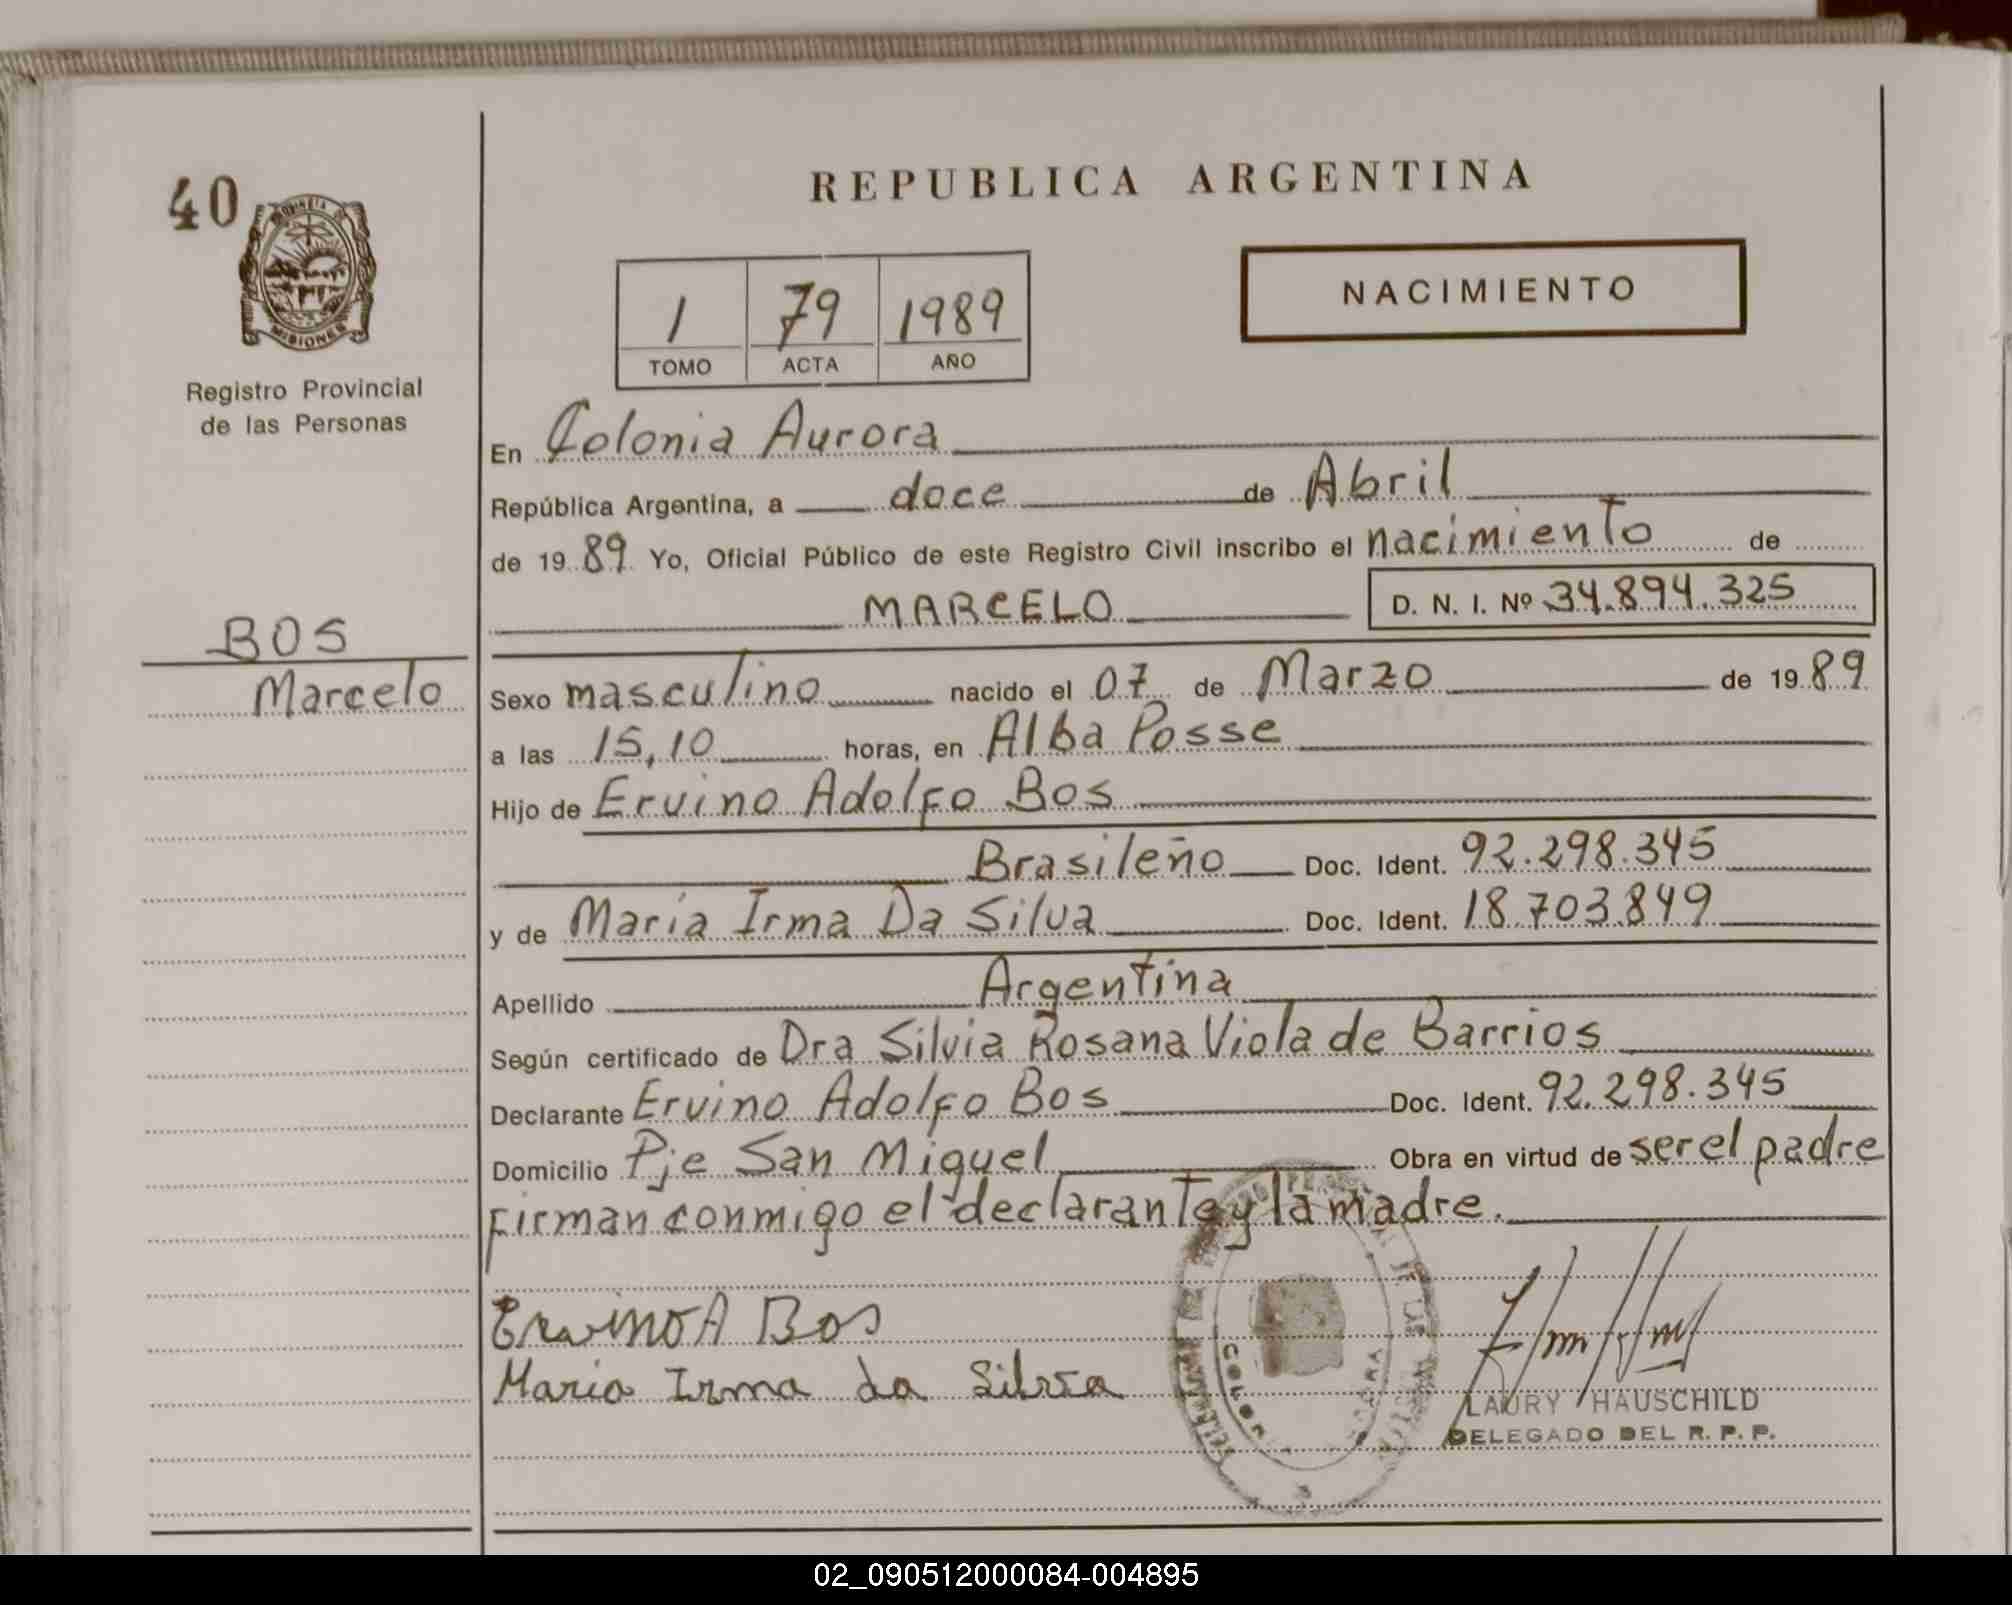 40
PROVINCIA DE
MISIONES
Registro Provincial
de las Personas
BOS
Marcelo
REPUBLICA ARGENTINA
1 79 1989
TOMO ACTA AÑO
NACIMIENTO
En Colonia Aurora
República Argentina, a doce de Abril
de 1989 Yo, Oficial Público de este Registro Civil inscribo el nacimiento de
MARCELO D. N. I. Nº 34.894.325
Sexo masculino nacido el 07 de Marzo de 1989
a las 15,10 horas, en Alba Posse
Hijo de Ervino Adolfo Bos
Brasileño Doc. Ident. 92.298.345
y de María Irma Da Silva Doc. Ident. 18.703.849
Apellido Argentina
Según certificado de Dra Silvia Rosana Viola de Barrios
Declarante Ervino Adolfo Bos Doc. Ident. 92.298.345
Domicilio Pje San Miguel Obra en virtud de ser el padre
Firman conmigo el declarante y la madre.
Ervino A Bos
Maria Irma da Silva
LAURY HAUSCHILD
DELEGADO DEL R. P. P.
02_090512000084-004895